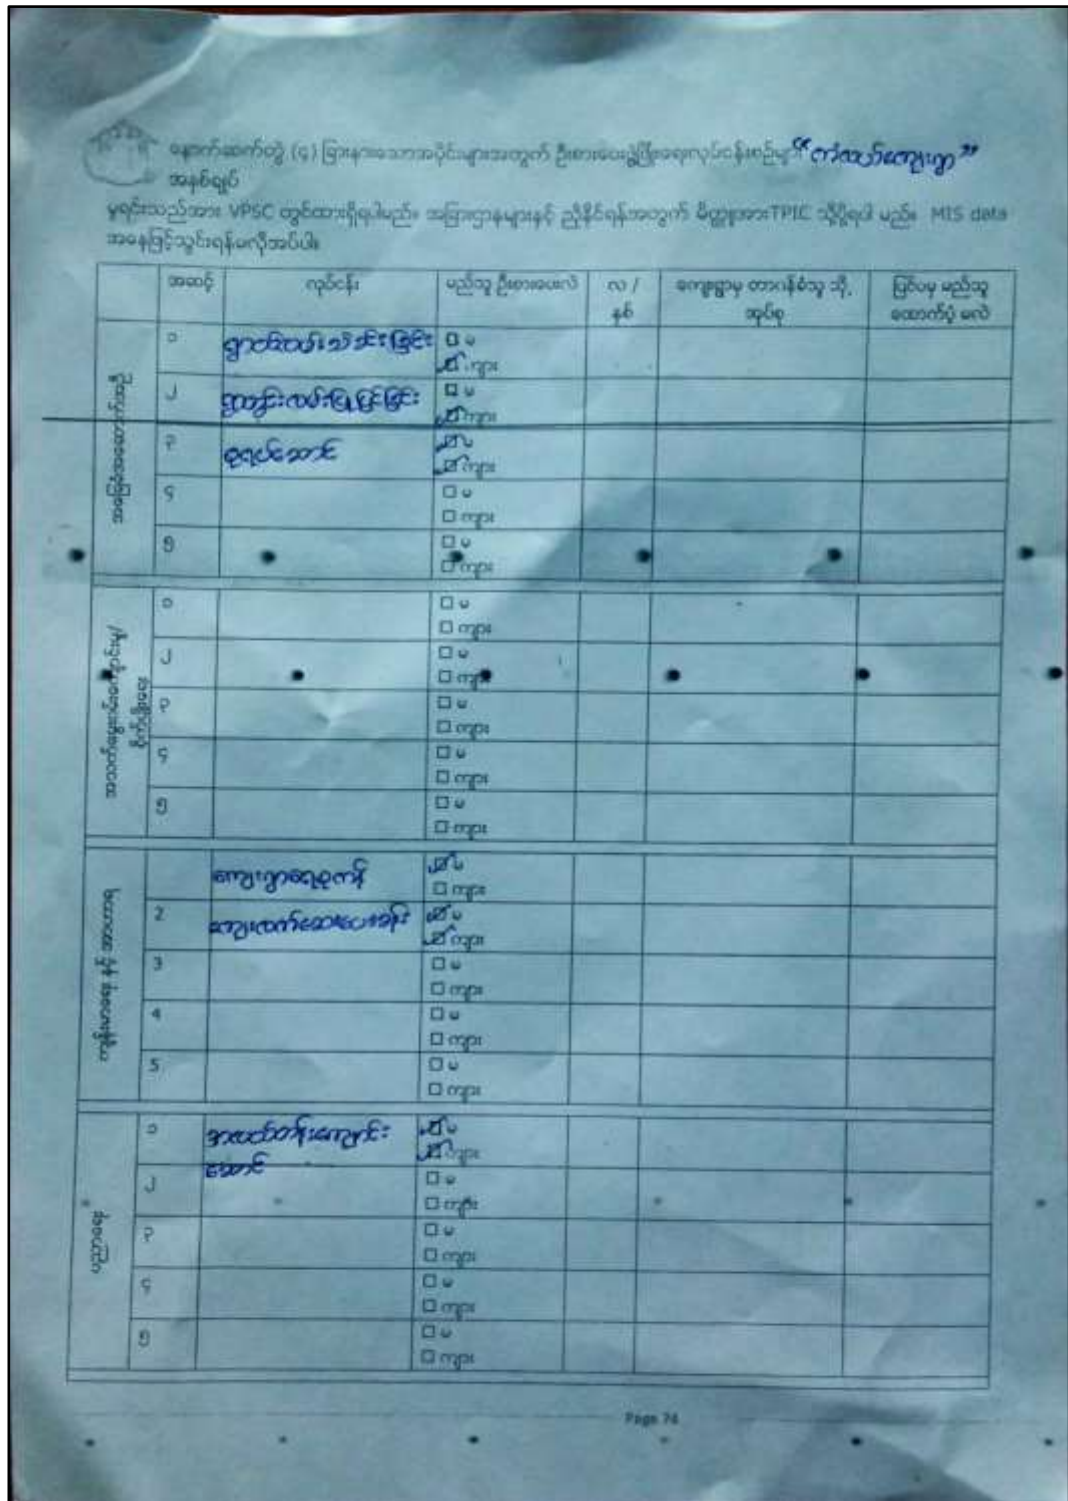 နောက်ဆက်တွဲ (၄) ခြားနားသောအပိုင်းများအတွက် ဦးစားပေးဖွံ့ဖြိုးရေးလုပ်ငန်းစဉ်များ
အနှစ်ချုပ်
မူရင်းသည်အား VPSC တွင်ထားရှိရပါမည်။ အခြားဌာနများနှင့် ညှိနှိုင်ရန်အတွက် မိတ္တူအားTPIC သို့ပို့ရပါ မည်။ MIS data
အနေဖြင့်သွင်းရန်မလိုအပ်ပါ။
အဆင့် လုပ်ငန်း မည်သူ ဦးစားပေးလဲ လ / နှစ် ကျေးရွာမှ တာဝန်ခံသူ သို့ အုပ်စု ပြင်ပမှ မည်သူ ထောက်ပံ့ မလဲ
အခြေခံအဆောက်အဦ
၁ □ မ
☑ ကျား
၂ ရွာတွင်းလမ်းပြုပြင်ခြင်း □ မ
☑ ကျား
၃ စုရပ်ဆောင် ☑ မ
☑ ကျား
၄ □ မ
□ ကျား
၅ □ မ
□ ကျား
အသက်မွေးဝမ်းကျောင်းမှု/
စိုက်ပျိုးရေး
၁ □ မ
□ ကျား
၂ □ မ
□ ကျား
၃ □ မ
□ ကျား
၄ □ မ
□ ကျား
၅ □ မ
□ ကျား
ကျန်းမာရေး နှင့် အာဟာရ
ကျေးရွာရေစုကန် ☑ မ
□ ကျား
2 ကျေးလက်ဆေးပေးခန်း ☑ မ
☑ ကျား
3 □ မ
□ ကျား
4 □ မ
□ ကျား
5 □ မ
□ ကျား
ပညာရေး
၁ အလယ်တန်းကျောင်း ☑ မ
ဆောင် ☑ ကျား
၂ □ မ
□ ကျား
၃ □ မ
□ ကျား
၄ □ မ
□ ကျား
၅ □ မ
□ ကျား
Page 74